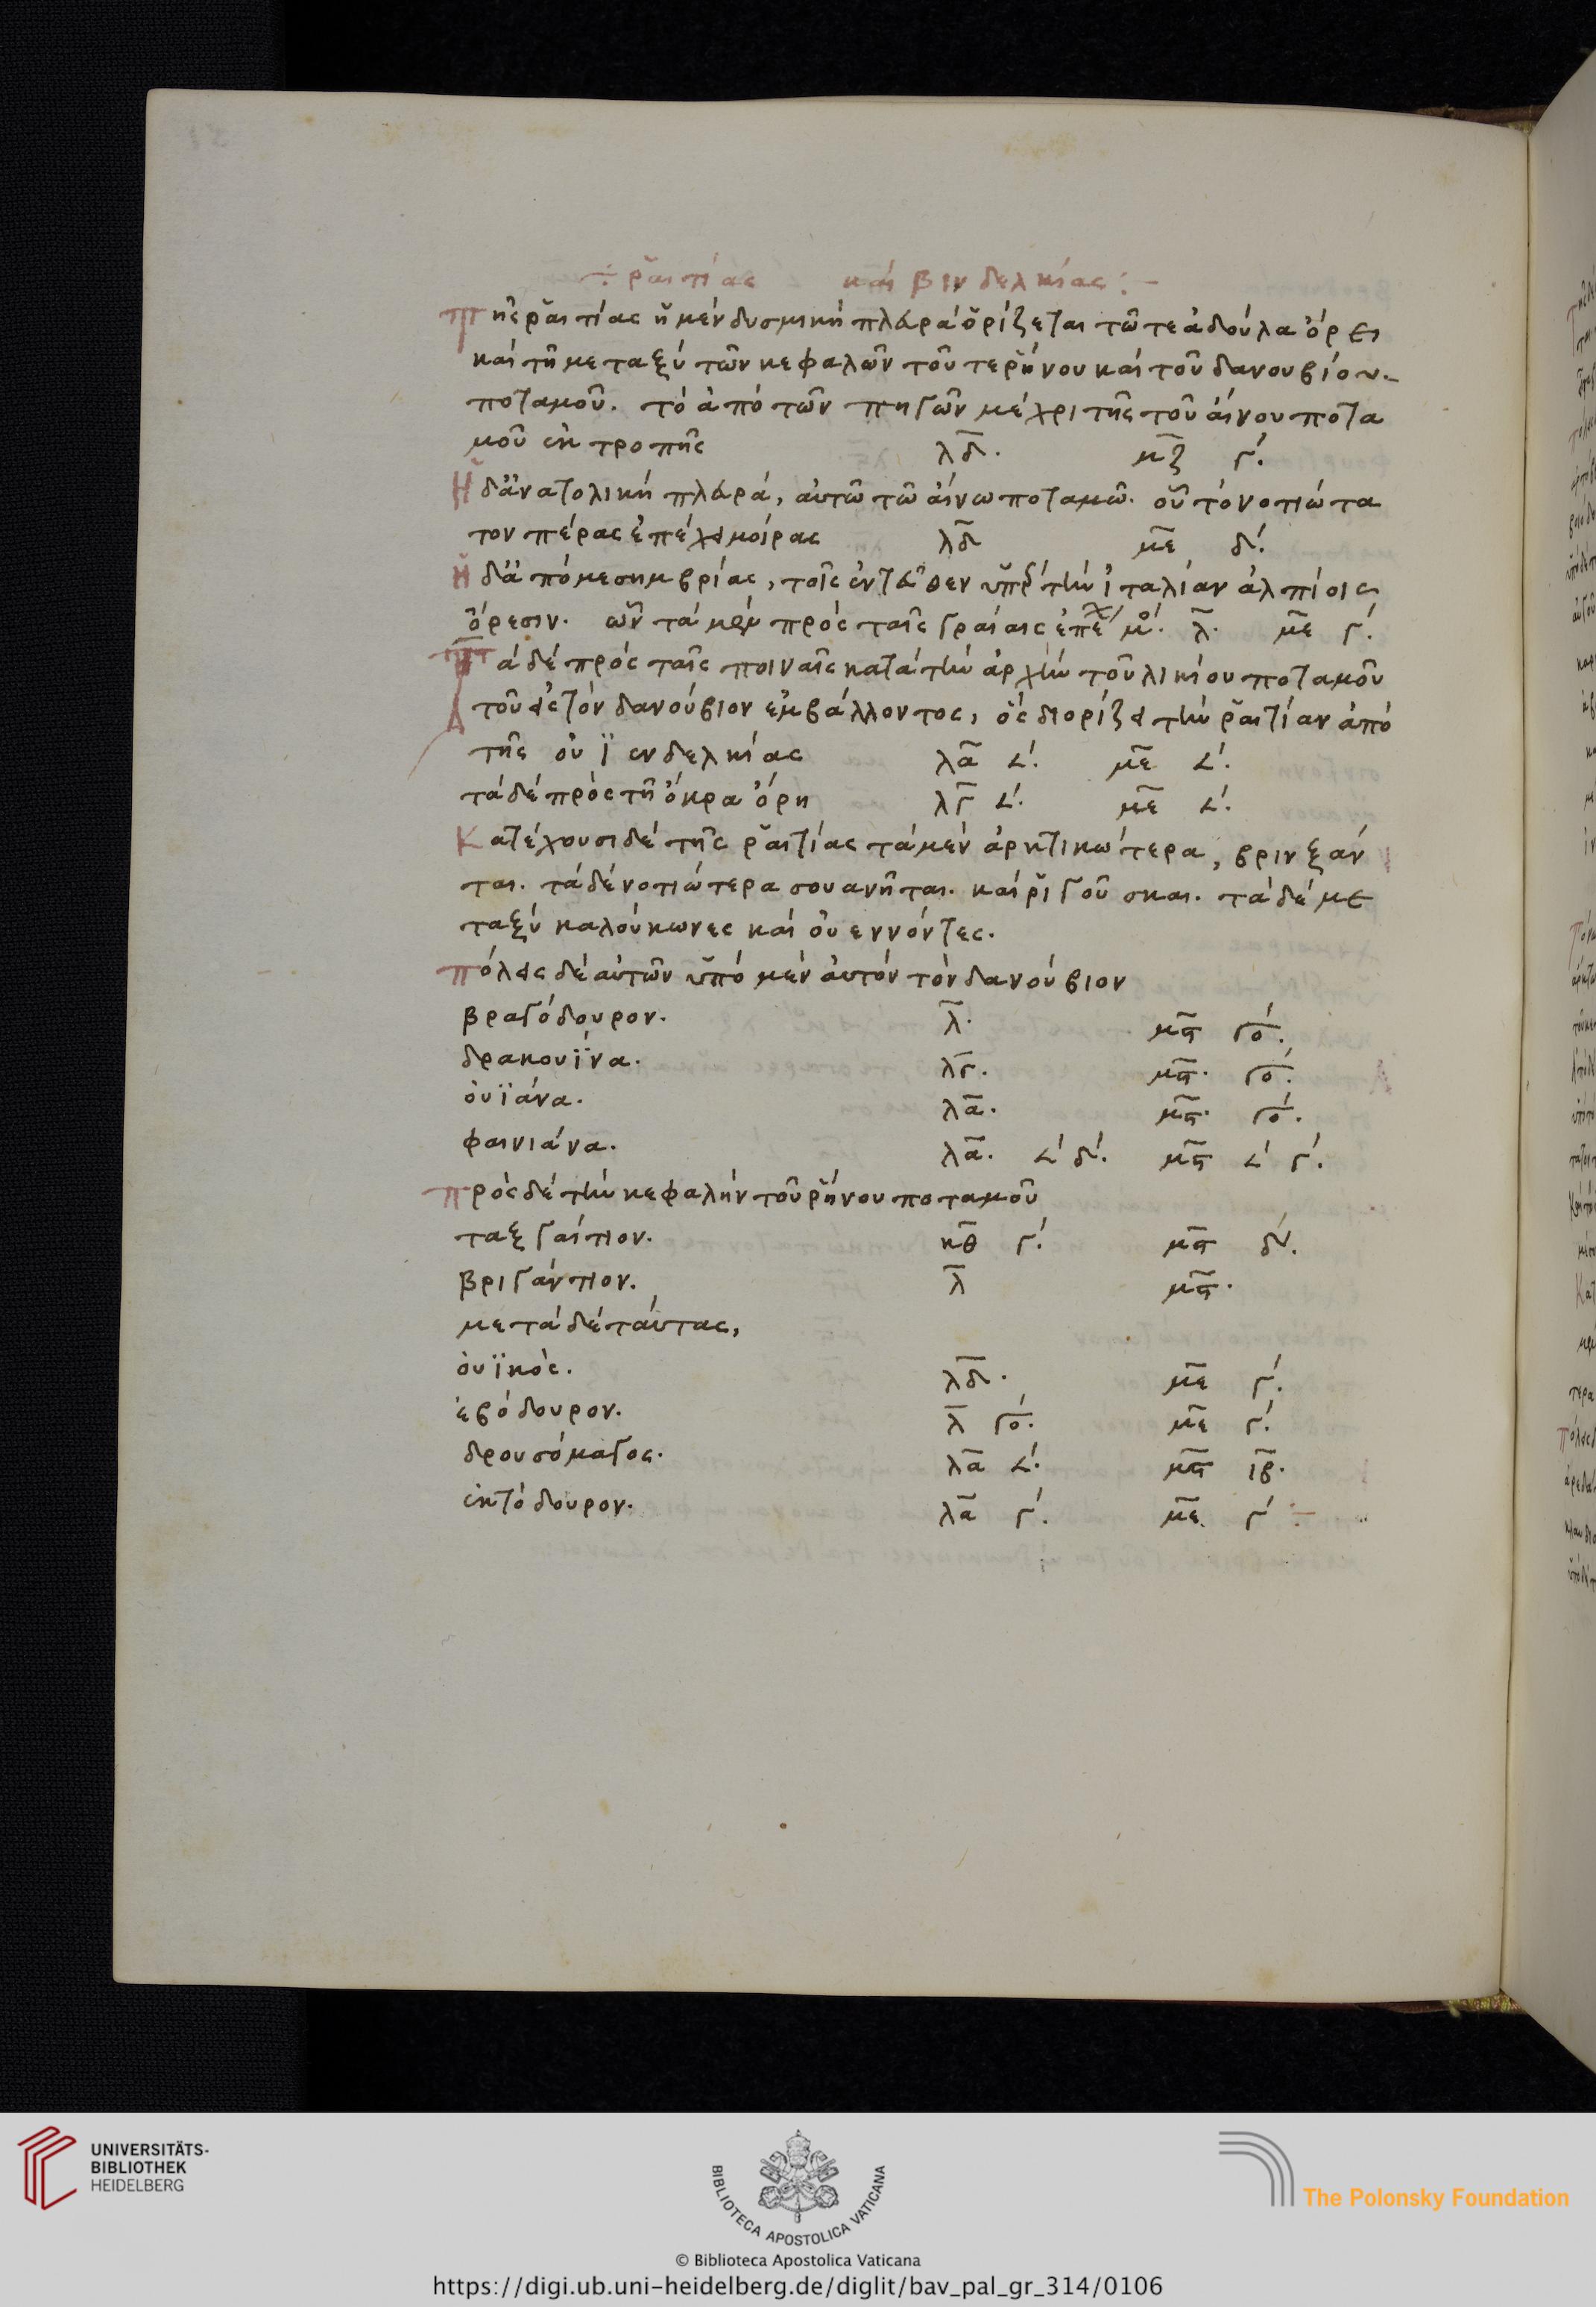 ÷ ῥαιτίας καὶ βινδελκίας :-
Τῆς ῥαιτίας ἡ μὲν δυσμικὴ πλευρὰ ὁρίζεται τῶ τε ἀδούλα ὄρει
καὶ τῆ μεταξὺ τῶν κεφαλῶν τοῦ τε ῥήνου καὶ τοῦ δανουβίου.-
ποταμοῦ. τὸ ἀπὸ τῶν πηγῶν μέχρι τῆς τοῦ αἴνου ποτα
μοῦ ἐκτροπῆς λδ. μζ γ΄.
Ἡ δ' ἀνατολικὴ πλευρά, αὐτῶ τῶ αἴνω ποταμῶ. οὗ τὸ νοτιώτα
τον πέρας ἐπέχει μοίρας λδ με δ΄.
ἡ δ' ἀπὸ μεσημβρίας, τοῖς ἐντεῦθεν ὑπὲρ τὴν ἰταλίαν ἀλπίοις
ὄρεσιν. ὧν τὰ μὲν πρὸς ταῖς γραίαις ἐπέχ μο. λ. με γ΄.
Τὰ δὲ πρὸς ταῖς ποιναῖς κατὰ τὴν ἀρχὴν τοῦ λικίου ποταμοῦ
τοῦ εἰς τὸν δανούβιον ἐμβάλλοντος, ὃς διορίζει τὴν ῥαιτίαν ἀπὸ
τῆς οὐϊενδελκίας λα ∠΄. με ∠΄.
τὰ δὲ πρὸς τῆ ὄκρα ὄρη λγ ∠΄. με ∠΄.
Κατέχουσι δὲ τῆς ῥαιτίας τὰ μὲν ἀρκτικώτερα, βριξάν
ται. τὰ δὲ νοτιώτερα σουανῆται. καὶ ῥιγοῦσκαι. τὰ δὲ με
ταξὺ καλούκωνες καὶ οὐεννόντες.
πόλεις δὲ αὐτῶν ὑπὸ μὲν αὐτὸν τὸν δανούβιον
βραγόδουρον. λ. μς γο΄.
δρακουΐνα. λγ. μς. γο΄.
ὀυϊάνα. λα. μς. γο΄.
φαινιάνα. λα. ∠΄ δ΄. μς ∠΄ γ΄.
πρὸς δὲ τὴν κεφαλὴν τοῦ ῥήνου ποταμοῦ
ταξγαίτιον. κθ γ΄. μς δ΄.
βριγάντιον. λ μς.
μετὰ δὲ ταύτας,
ὀυϊκὸς. λδ. με γ΄.
ἐβόδουρον. λ γο΄. με γ΄.
δρουσόμαγος. λα ∠΄. μς ιβ.
ἐκτόδουρον. λα γ΄. με. γ΄ :-
UNIVERSITÄTS-
BIBLIOTHEK
HEIDELBERG
BIBLIOTECA APOSTOLICA VATICANA
© Biblioteca Apostolica Vaticana
The Polonsky Foundation
https://digi.ub.uni-heidelberg.de/diglit/bav_pal_gr_314/0106